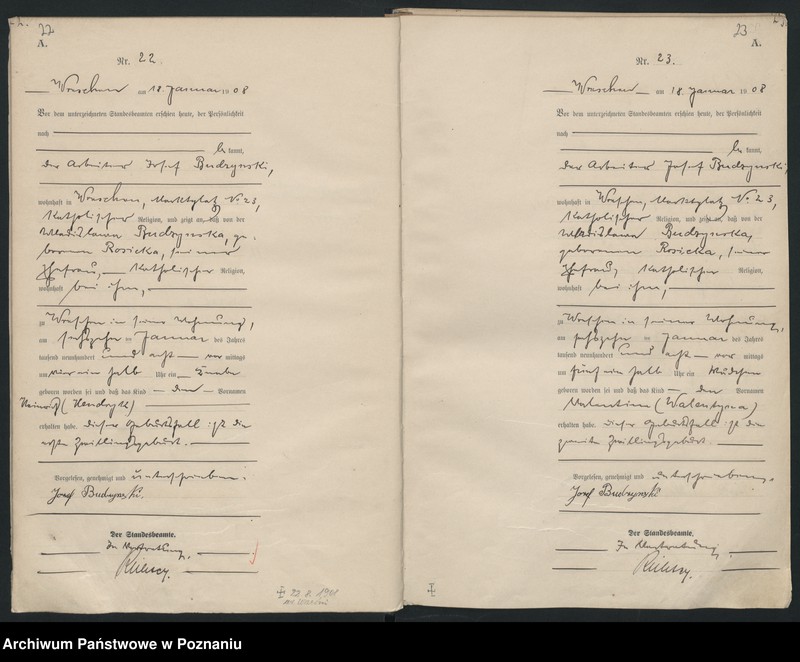 22
A.
Nr. 22
Wreschen am 18. Januar 1908
Vor dem unterzeichneten Standesbeamten erschien heute, der Persönlichkeit
nach
be kannt,
der Arbeiter Josef Budzynski,
wohnhaft in Wreschen, Marktplatz No 23,
katholischer Religion, und zeigt an, daß von der
Wladislawa Budzynska, ge-
borenen Rosicka, seiner
Ehefrau, katholischer Religion,
wohnhaft bei ihm,
zu Wreschen in seiner Wohnung,
am sechszehnten Januar des Jahres
tausend neunhundert und acht vor mittags
um vier ein halb Uhr ein Knabe
geboren worden sei und daß das Kind den Vornamen
Heinrich (Hendryk)
erhalten habe. Dieser Geburtsfall ist die
erste Zwillingsgeburt.
Vorgelesen, genehmigt und unterschrieben.
Josef Budzynski.
Der Standesbeamte.
In Vertretung.
23
A.
Nr. 23.
Wreschen am 18. Januar 1908
Vor dem unterzeichneten Standesbeamten erschien heute, der Persönlichkeit
nach
be kannt,
der Arbeiter Josef Budzynski,
wohnhaft in Wreschen, Marktplatz No 23,
katholischer Religion, und zeigt an, daß von der
Wladislawa Budzynska,
geborenen Rosicka, seiner
Ehefrau, katholischer Religion,
wohnhaft bei ihm,
zu Wreschen in seiner Wohnung,
am sechszehnten Januar des Jahres
tausend neunhundert und acht vor mittags
um fünf ein halb Uhr ein Mädchen
geboren worden sei und daß das Kind den Vornamen
Valentina (Walentyna)
erhalten habe. Dieser Geburtsfall ist die
zweite Zwillingsgeburt.
Vorgelesen, genehmigt und unterschrieben.
Josef Budzynski
Der Standesbeamte.
In Vertretung.
Archiwum Państwowe w Poznaniu